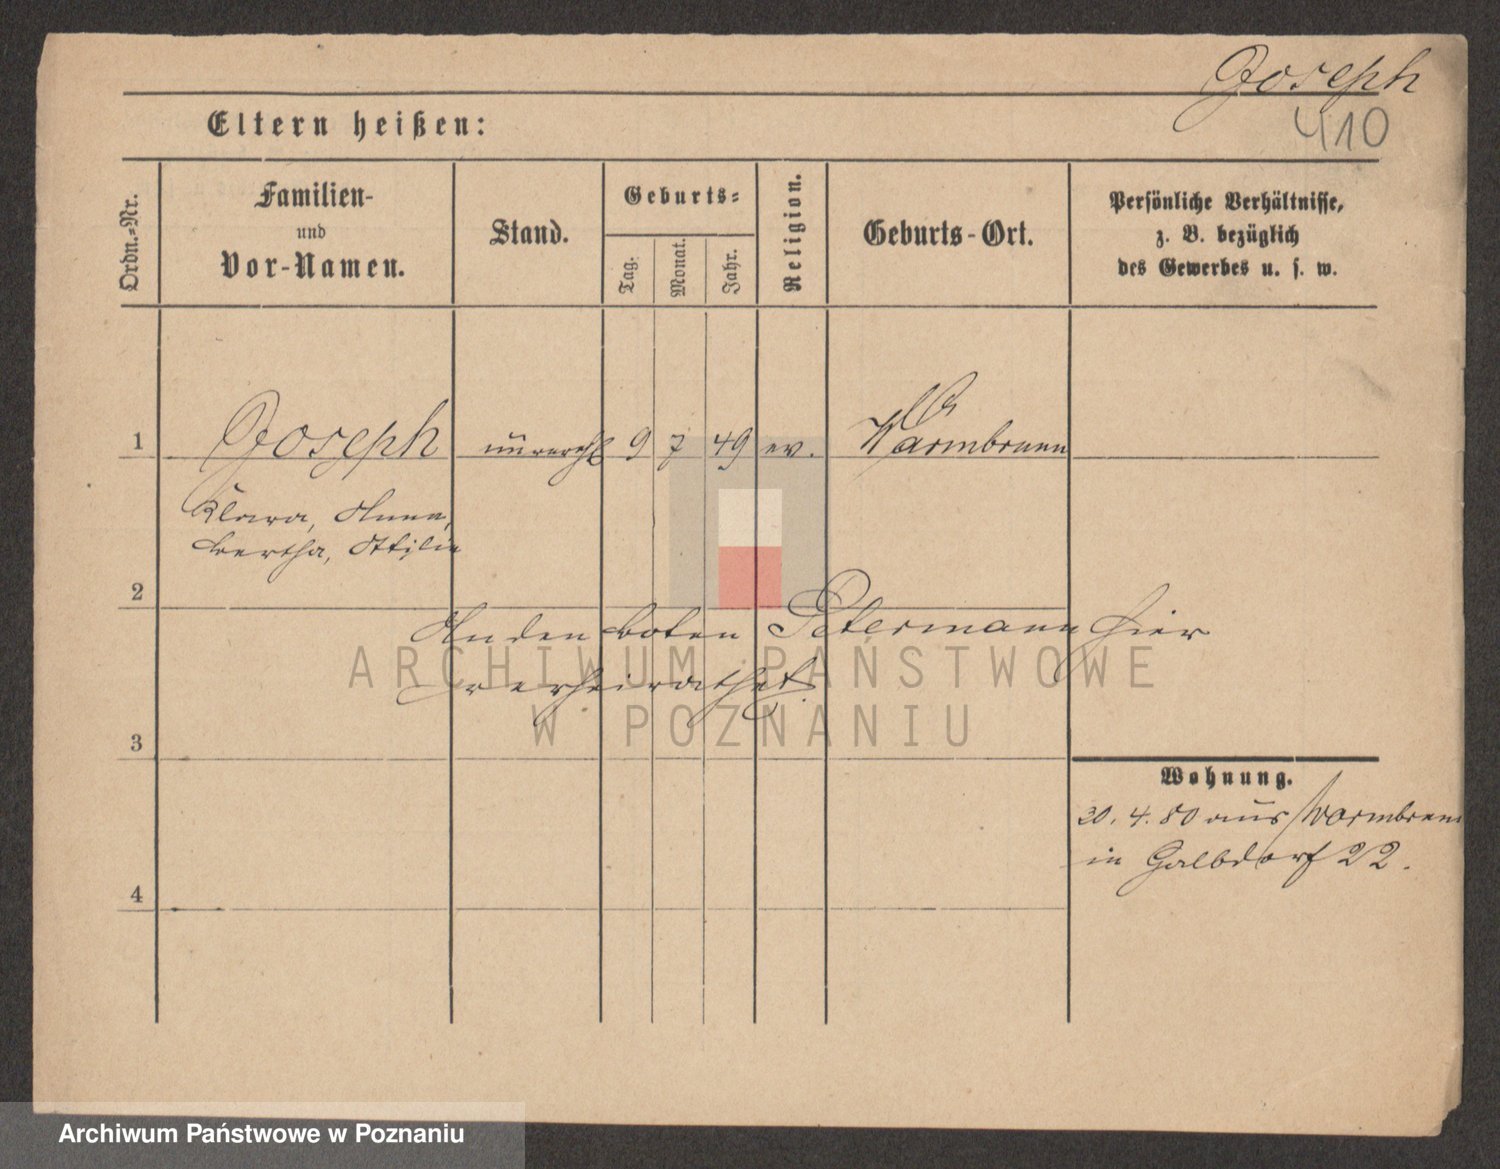 Joseph
410
Eltern heißen:
Ordn.-Nr.
Familien-
und
Vor-Namen.
Stand.
Geburts-
Tag.
Monat.
Jahr.
Religion.
Geburts-Ort.
Persönliche Verhältnisse,
z. B. bezüglich
des Gewerbes u. s. w.
1
Joseph
unverehl
9 7 49 ev.
Warmbrunn
Klara, Anna,
Bertha, Ottilie
2
An den Boten Petermann hier
verheirathet.
3
Wohnung.
30. 4. 80 aus Warmbrunn
in 22.
4
ARCHIWUM PAŃSTWOWE
W POZNANIU
Archiwum Państwowe w Poznaniu